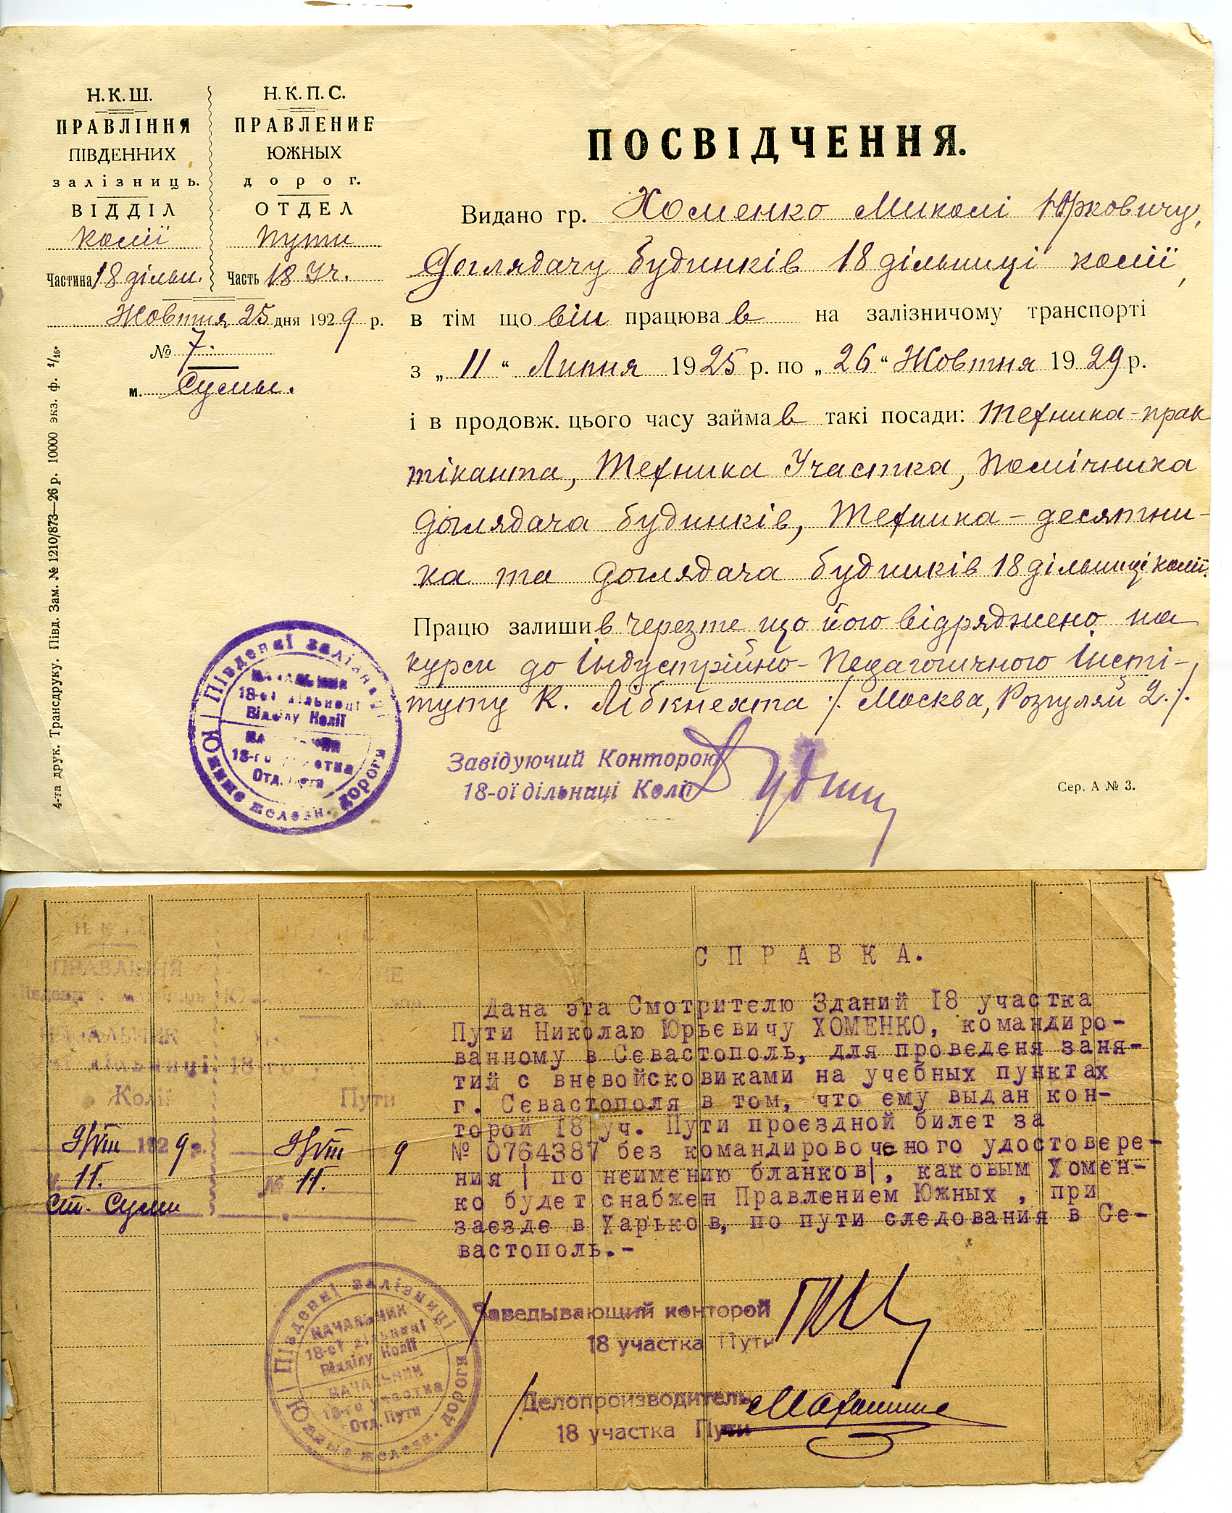 Н.К.Ш.
ПРАВЛІННЯ
ПІВДЕННИХ
залізниць.
ВІДДІЛ
Колії
Частина 18 дільн.
Н.К.П.С.
ПРАВЛЕНИЕ
ЮЖНЫХ
дорог.
ОТДЕЛ
Пути
Часть 18 Уч.
Жовтня 25 дня 1929 р.
№ 7.
м. Сумы.
4-та друк. Трансдруку. Півд. Зам. № 1210/873—26 р. 10000 экз. ф. 1/16.
ПОСВІДЧЕННЯ.
Видано гр. Хоменко Миколі Юрковичу,
Доглядачу будинків 18 дільниці колії,
в тім що він працював на залізничому транспорті
з „11“ Липня 1925 р. по „26“ Жовтня 1929 р.
і в продовж. цього часу займав такі посади: Техника-прак
тіканта, Техника Участка, Помічника
доглядача будинків, Техника-десятни-
ка та доглядача будинків 18 дільниці колії.
Працю залишив через те що його відряджено на
курси до Індустрійно-Педагогичного Інсті-
туту К. Лібкнехта /Москва, Розгуляй 2./.
Завідуючий Конторою
18-ої дільниці Колії
Сер. А № 3.
Південні залізниці
Начальник
18-ої дільниці
Відділу Колії
Начальник
18-го участка
Отд. Пути
Южные железн. дороги
СПРАВКА.
Дана эта Смотрителю Зданий 18 участка
Пути Николаю Юрьевичу ХОМЕНКО, командиро-
ванному в Севастополь, для проведеня заня-
тий с вневойсковиками на учебных пунктах
г. Севастополя в том, что ему выдан кон-
торой 18 уч. Пути проездной билет за
№ 0764387 без командировочного удостовере-
ния / по неимению бланков/, каковым Хомен-
ко будет снабжен Правлением Южных , при
заезде в Харьков, по пути следования в Се-
вастополь.-
ПРАВЛІННЯ
НАЧАЛЬНИК
дільниці
Колії
18-го
Пути
9/VIII 1929 р.
№ 11.
ст. Суми
9/VIII 9
№ 11.
Заведывающий конторой
18 участка Пути
Делопроизводитель
18 участка Пути
Південні залізниці
НАЧАЛЬНИК
18-ої дільниці
Відділу Колії
НАЧАЛЬНИК
18-го участка
Отд. Пути
Южные железн. дороги